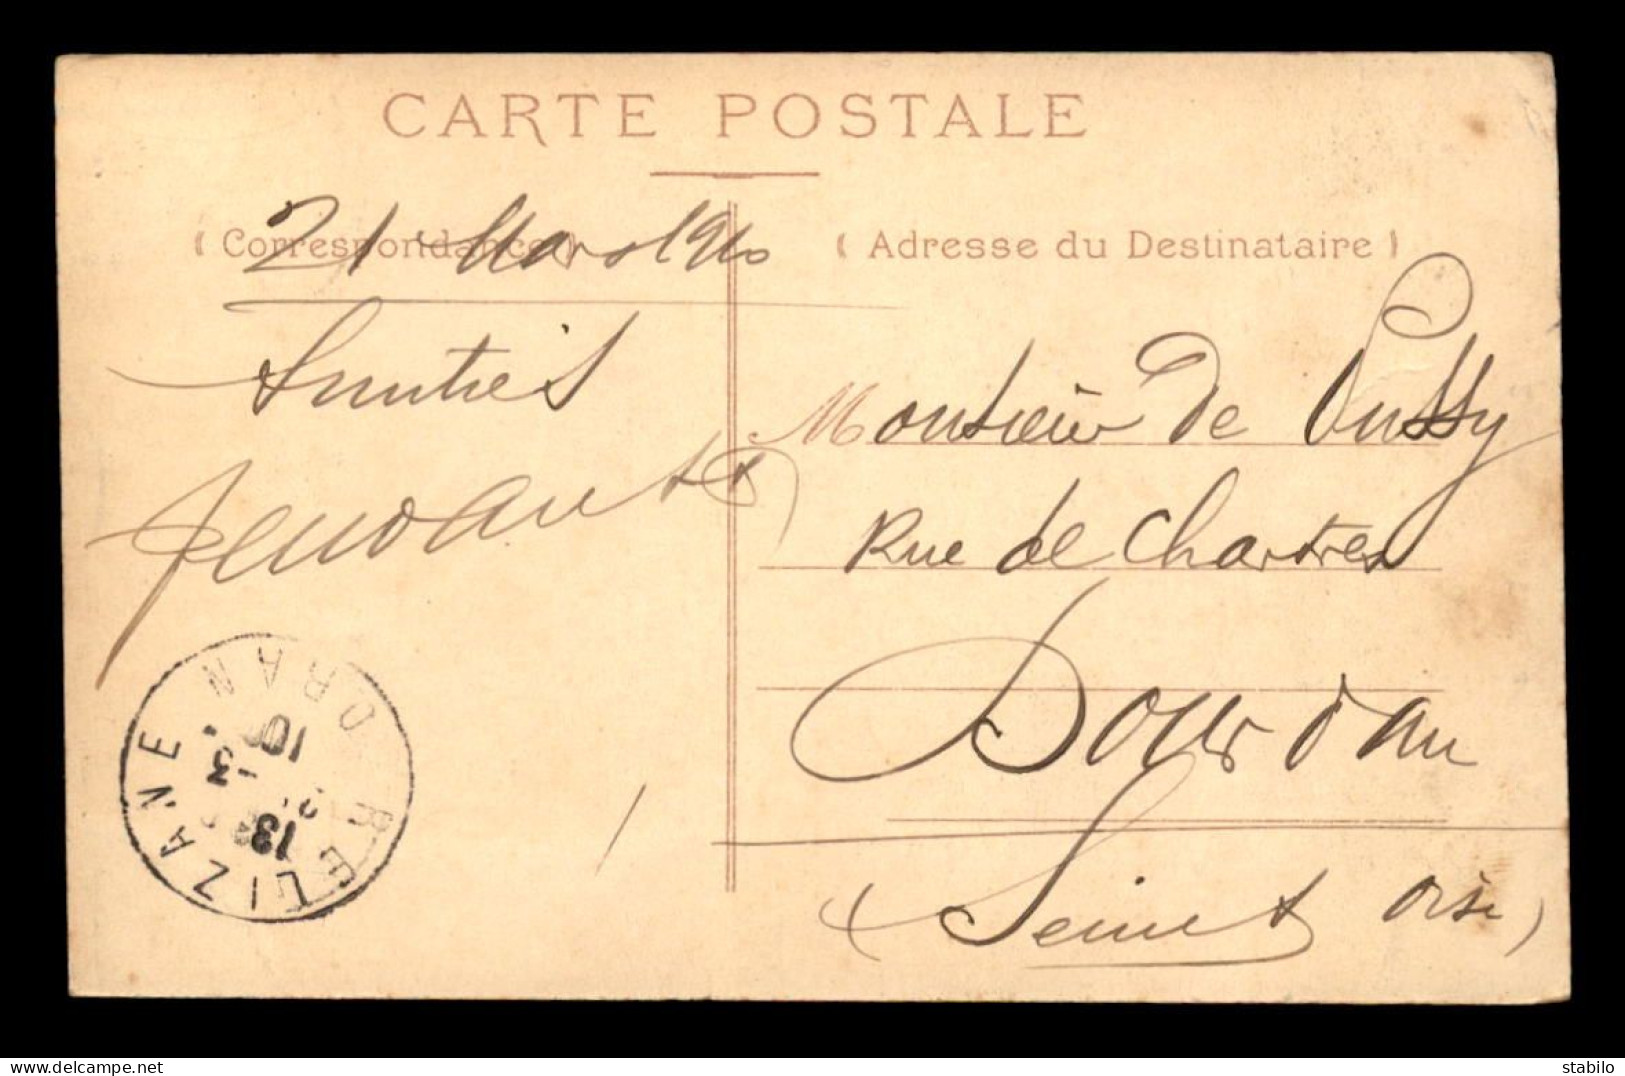 CARTE POSTALE
( Correspondance )
21 Mars 1910
( Adresse du Destinataire )
Monsieur De
Rue de Chartres
Dourdan
(Seine et Oise)
RELIZANE
ORAN
13
-3
10
stabilo